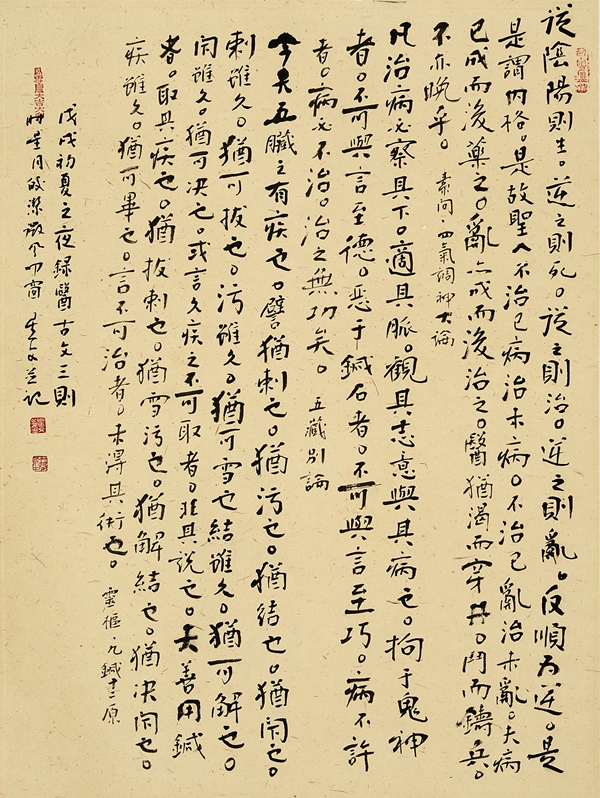 從陰陽則生。逆之則死。從之則治。逆之則亂。反順為逆。是
是謂內格。是故聖人不治已病治未病。不治已亂治未亂。夫病
已成而後藥之。亂已成而後治之。醫猶渴而穿井。鬥而鑄兵。
不亦晚乎。素問·四氣調神大論
凡治病必察其下。適其脈。觀其志意與其病也。拘于鬼神
者。不可與言至德。惡于鍼石者。不可與言至巧。病不許
者。病必不治。治之無功矣。五藏別論
今夫五臟之有疾也。譬猶刺也。猶污也。猶結也。猶閉也。
刺雖久。猶可拔也。污雖久。猶可雪也。結雖久。猶可解也。
閉雖久。猶可決也。或言久疾之不可取者。非其說也。夫善用鍼
者。取其疾也。猶拔刺也。猶雪污也。猶解結也。猶決閉也。
疾雖久。猶可畢也。言不可治者。未得其術也。靈樞·九鍼十二原
戊戌初夏之夜錄醫古文三則
時星月皎潔微風叩窗 並記